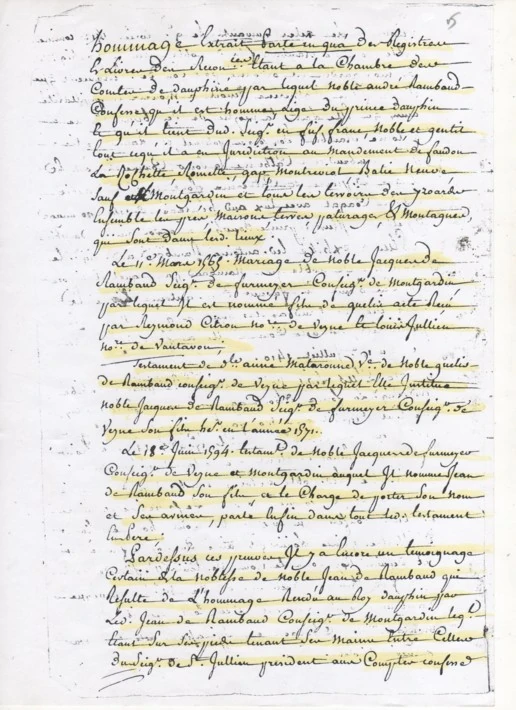 5
hommage Extrait parte in qua des Registres
& Livres des Reconces Etant a la Chambre des
Comtes de dauphiné par lequel noble andré Rambaud
Confesse qu'il est homme lige du prince dauphin
Et qu'il tient dud. Seigr. en fief franc noble et gentil
tout ce qu'il a en Jurisdiction au mandement de faudon
La Rochette Romette, gap Montreviol Batie Neuve
Sauf Montgardin et tous les terroirs
Ensemble les prés Maisons terres paturages & Montagnes
qui sont dans lesd. lieux.
Le 11e. Mars 1565 Mariage de noble Jacques de
Rambaud Seigr. de furmeyer Conseigr. de Montgardin
par lequel Il est nommé fils de quelis acte Reçu
par Reymond Citron nore. de Veyne et Louis Jullien
nore. de Vantavon
Testament de Dlle anne Mataronne Ve. de Noble quelis
de Rambaud conseigr. de Veyne par lequel Elle Institue
noble Jacques de Rambaud Seigr. de furmeyer Conseigr. de
Veyne son fils her. en l'année 1571.
Le 18e Juin 1594. testamt. de Noble Jacques de furmeyer
Conseigr. de Veyne et Montgardin auquel Il nomme Jean
de Rambaud Son fils et le Charge de porter Son nom
et Ses armes, parlé Enfin dans tout led. testament
Pardessus ces preuves Il y a Encore un temoignage
Certain de la noblesse de noble Jean de Rambaud qui
Resulte de L'hommage Rendu au Roy dauphin par
Led. Jean de Rambaud Conseigr. de Montgardin leql.
Etant Sur Ses pieds tenant Ses Mains Entre Celles
du Seigr. de St. Jullien president aux Comptes confesse